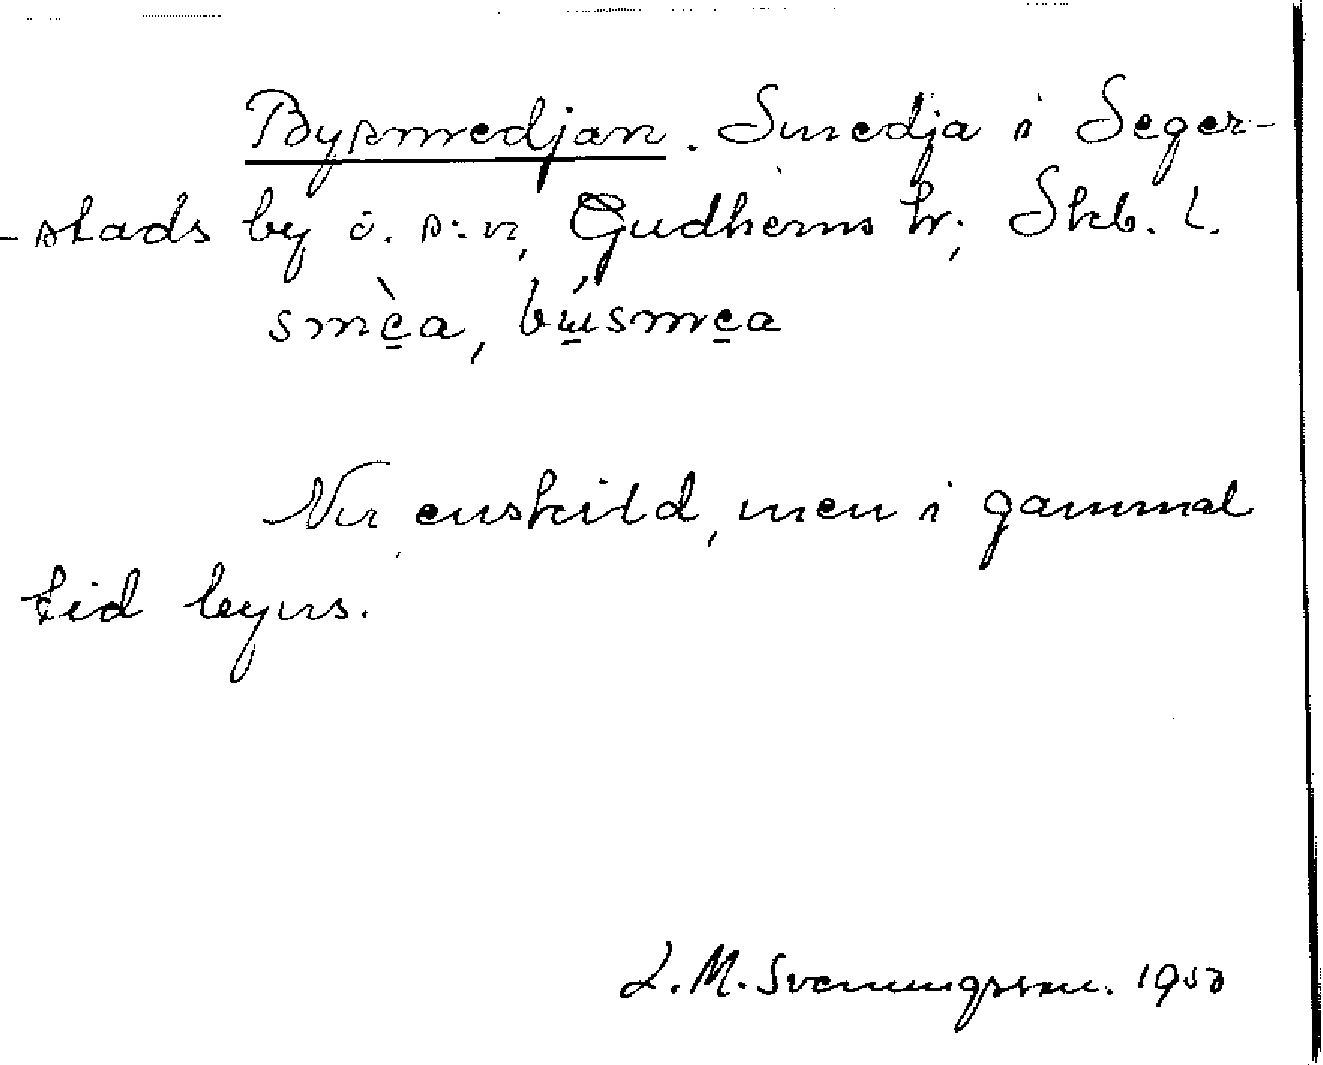 Bysmedjan. Smedja i Seger-
-stads by o. s:n, Gudhems hr; Skb. l.
smèa, bysmea
Nu enskild, men i gammal
tid byns.
L. M. Svenungsson. 1950